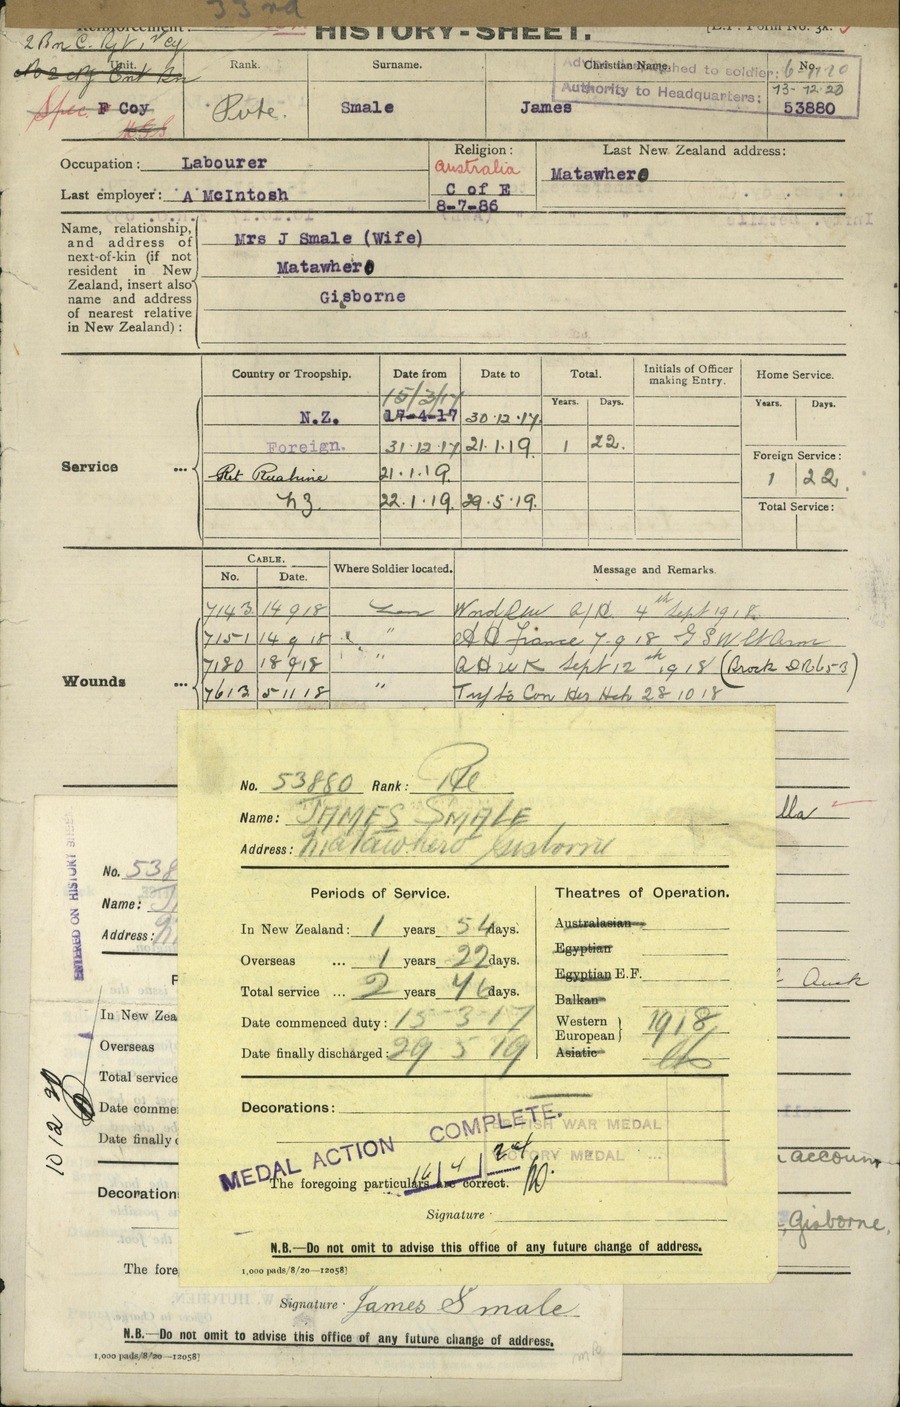 33rd
Reinforcement:
HISTORY-SHEET.
[E.F. Form No. 3x.
2 Bn C. Rgt,
Unit. Rank. Surname. Christian Name. No.
Spec. F Coy Pvte. Smale James 53880
6-11-20
Authority to Headquarters; 13-12-20
Religion: Last New Zealand address:
Occupation: Labourer Australia Matawhero
Last employer: A McIntosh C of E
8-7-86
Name, relationship, and address of next-of-kin (if not resident in New Zealand, insert also name and address of nearest relative in New Zealand):
Mrs J Smale (Wife)
Matawhero
Gisborne
Service ...
Country or Troopship. Date from Date to Total. Initials of Officer making Entry. Home Service.
Years. Days. Years. Days.
15/3/17
N.Z. 17-4-17 30.12.17.
Foreign. 31.12.17 21.1.19. 1 22.
Foreign Service:
Ret Ruahine 21.1.19. 1 22.
NZ. 22.1.19. 29.5.19.
Total Service:
Wounds ...
CABLE.
No. Date. Where Soldier located. Message and Remarks.
7143 14 9 18 4th Sept 1918.
7151 14 9 18 " France 7.9.18 G S W Lt Arm
7180 18 9 18 " Sept 12th 1918 (Brock
7613 5 11 18 " Con 28 10 18
No. 53880 Rank: Pte
Name: JAMES SMALE
Address: Matawhero Gisborne
Periods of Service. Theatres of Operation.
In New Zealand: 1 years 54 days. Australasian
Overseas ... 1 years 22 days. Egyptian
Total service ... 2 years 46 days. Egyptian E.F.
Balkan
Date commenced duty: 15-3-17 Western European } 1918
Date finally discharged: 29 5 19 Asiatic
Decorations:
BRITISH WAR MEDAL
VICTORY MEDAL ...
MEDAL ACTION COMPLETE.
The foregoing particulars are correct.
Signature
N.B.—Do not omit to advise this office of any future change of address.
1,000 pads/8/20—12058]
ENTERED ON HISTORY SHEET
No. 538
Name:
Address:
In New Zea
Overseas
Total service
Date comme
Date finally d
10 12 20
Decoration
The fore
Signature James Smale
N.B.—Do not omit to advise this office of any future change of address.
1,000 pads/8/20—12058]
Auck
account
, Gisborne,